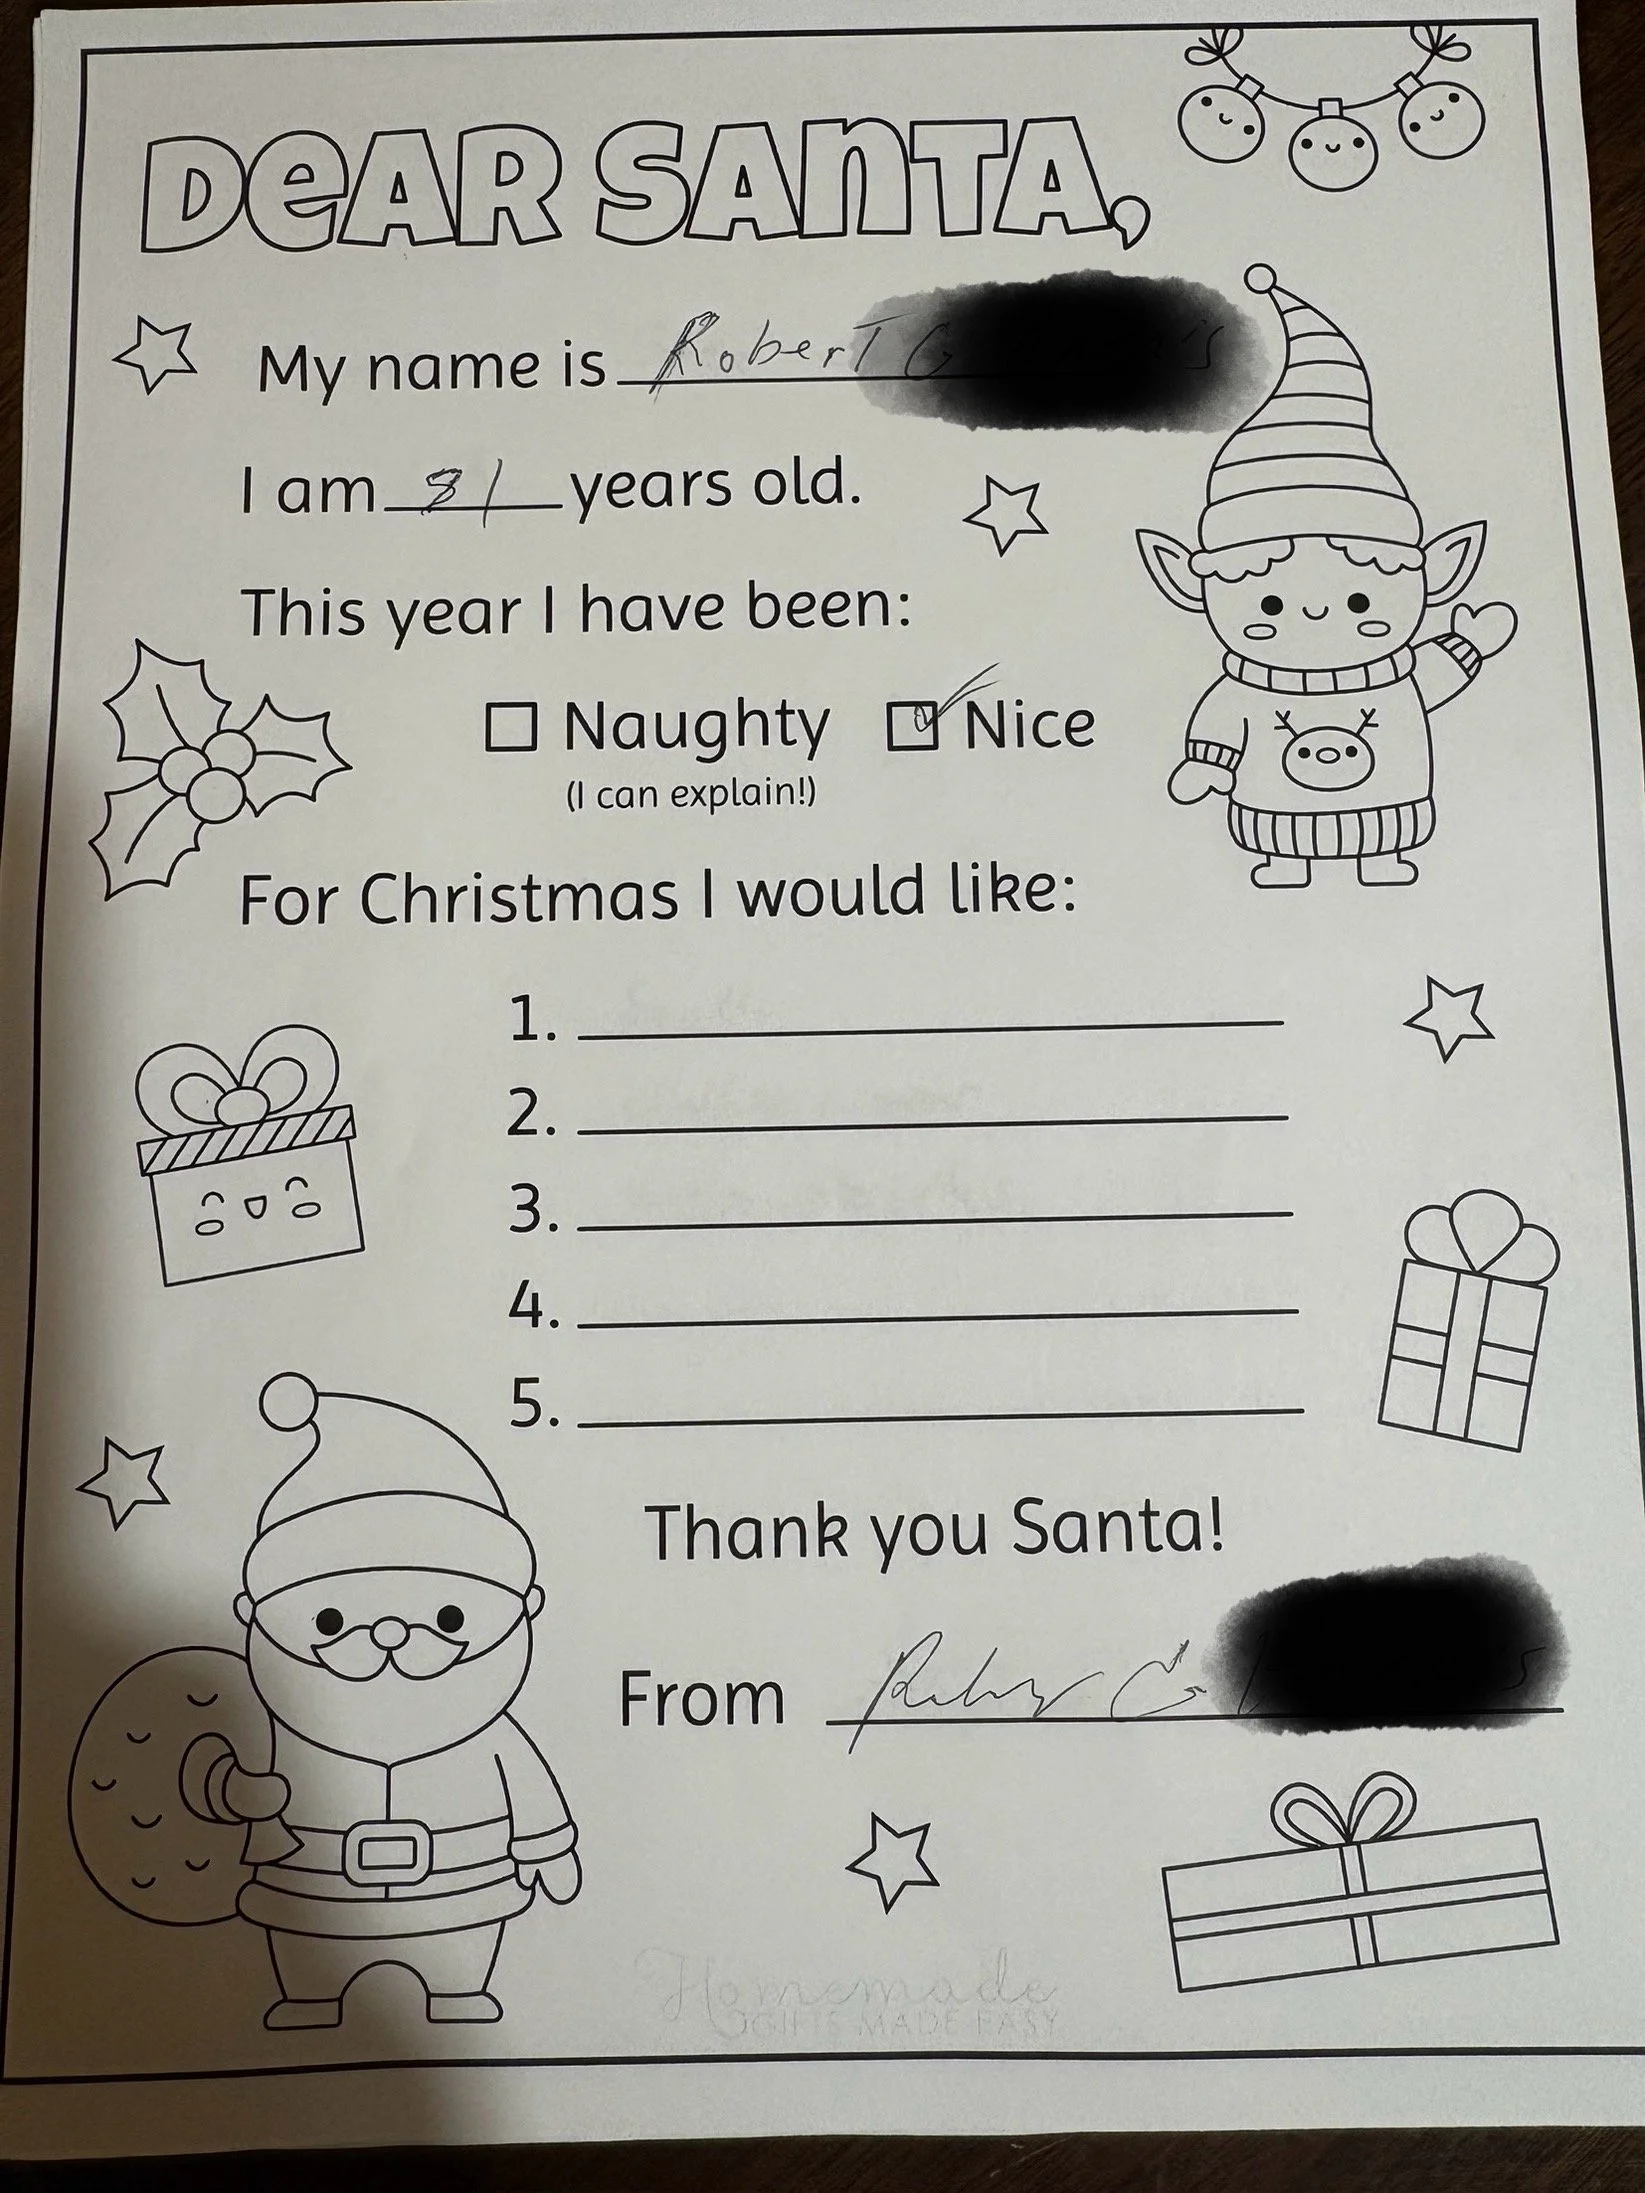 DEAR SANTA,
My name is Robert G
I am 81 years old.
This year I have been:
Naughty Nice
(I can explain!)
For Christmas I would like:
1.
2.
3.
4.
5.
Thank you Santa!
From
Homemade
GIFTS MADE EASY